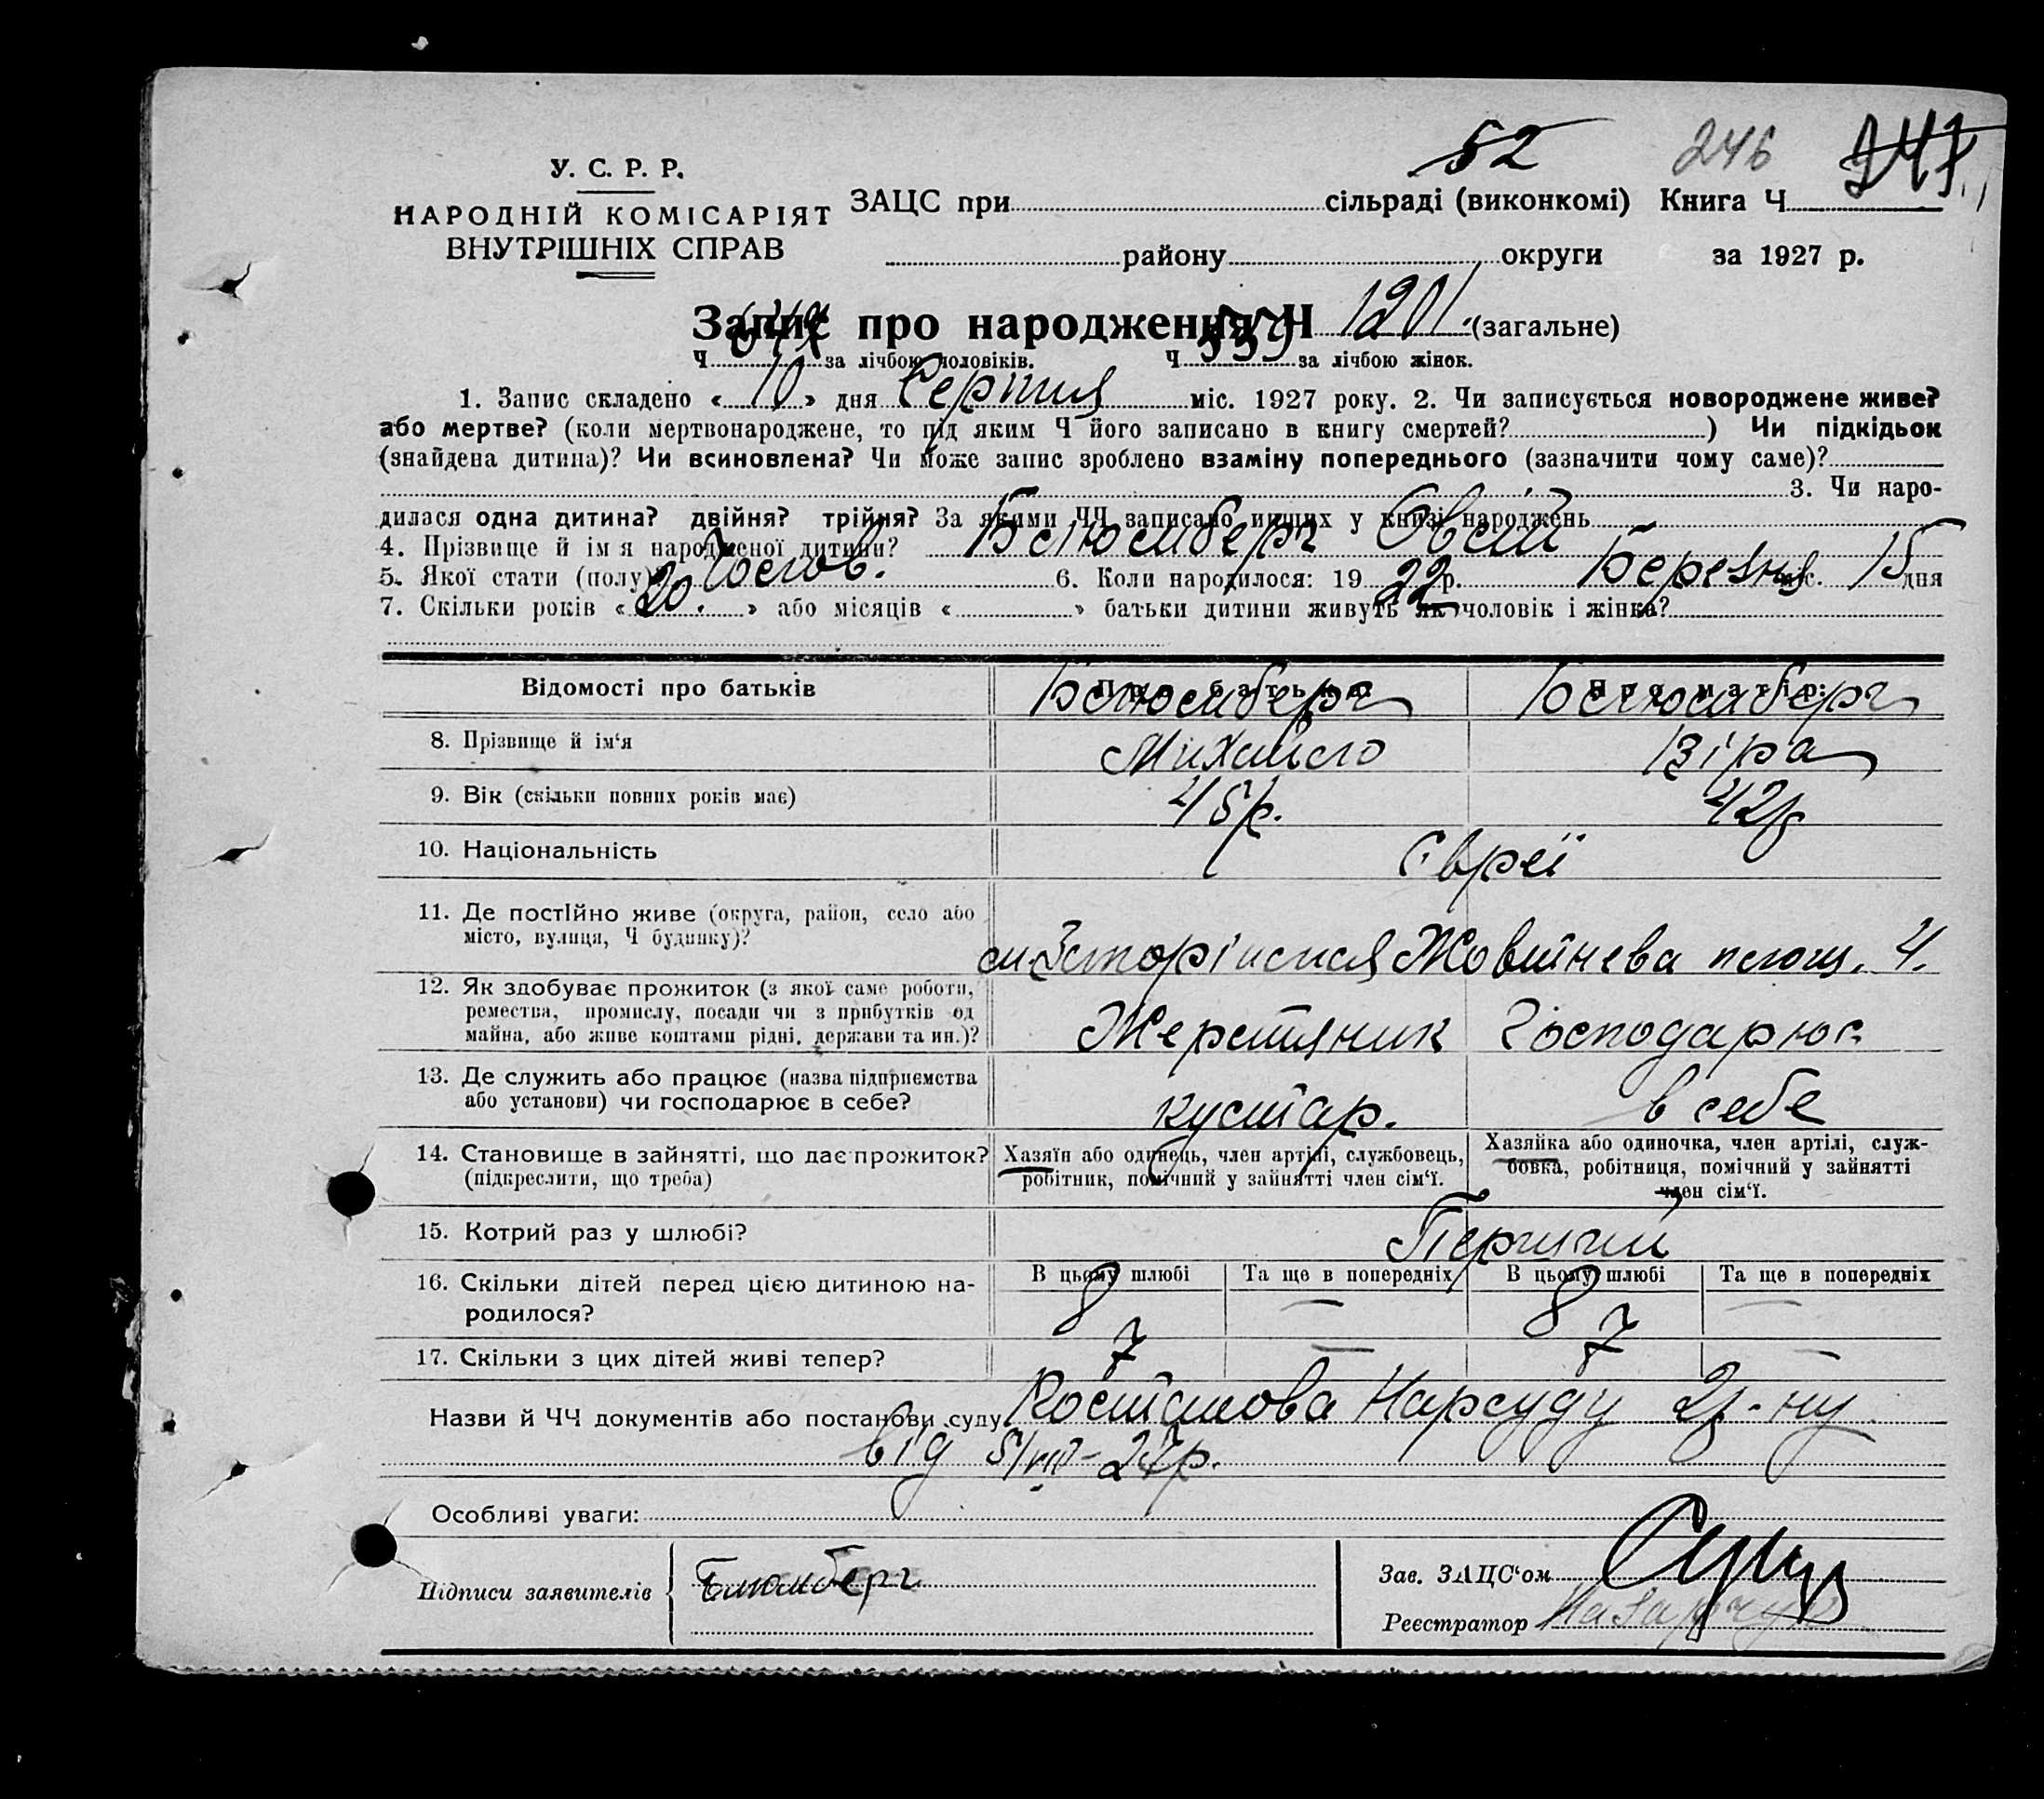 52 246 247
У. С. Р. Р.
НАРОДНІЙ КОМІСАРІЯТ
ВНУТРІШНІХ СПРАВ
ЗАЦС при сільраді (виконкомі) Книга Ч
району округи за 1927 р.
Запис про народження Ч 1201. (загальне)
Ч за лічбою чоловіків. Ч 559 за лічбою жінок.
1. Запис складено « 10 » дня Серпня міс. 1927 року. 2. Чи записується новороджене живе?
або мертве? (коли мертвонароджене, то під яким Ч його записано в книгу смертей? ) Чи підкідьок
(знайдена дитина)? Чи всиновлена? Чи може запис зроблено взаміну попереднього (зазначити чому саме)?
3. Чи наро-
дилася одна дитина? двійня? трійня? За якими ЧЧ записано инших у книзі народжень
4. Прізвище й імя народженої дитини? Блюмберг Овсій
5. Якої стати (полу) Чолов. 6. Коли народилося: 19 22 р. Березня міс. 15 дня
7. Скільки років « 20. » або місяців « » батьки дитини живуть як чоловік і жінка?
Відомості про батьків Про батька: Про матір:
Блюмберг Блюмберг
8. Прізвище й ім‘я Михайло Віра
9. Вік (скільки повних років має) 45р. 42р
10. Національність Євреї
11. Де постійно живе (округа, район, село або
місто, вулиця, Ч будинку)? Жовтнева площ. 4.
12. Як здобуває прожиток (з якої саме роботи,
ремества, промислу, посади чи з прибутків од
майна, або живе коштами рідні, держави та ин.)? Жерстяник Господарює
13. Де служить або працює (назва підприємства
або установи) чи господарює в себе? кустар. в себе
14. Становище в зайнятті, що дає прожиток?
(підкреслити, що треба)
Хазяїн або одинець, член артілі, службовець,
робітник, помічний у зайнятті член сім‘ї.
Хазяйка або одиночка, член артілі, служ-
бовка, робітниця, помічний у зайнятті
член сім‘ї.
15. Котрий раз у шлюбі? Перший
16. Скільки дітей перед цією дитиною на-
родилося?
В цьому шлюбі Та ще в попередніх В цьому шлюбі Та ще в попередніх
8 — 8 —
17. Скільки з цих дітей живі тепер? 7 — 7 —
Назви й ЧЧ документів або постанови суду Постанова Нарсуду 2р-ну
від 5/VIII-27р.
Особливі уваги:
Підписи заявителів Блюмберг
Зав. ЗАЦС‘ом
Реєстратор Назарчук